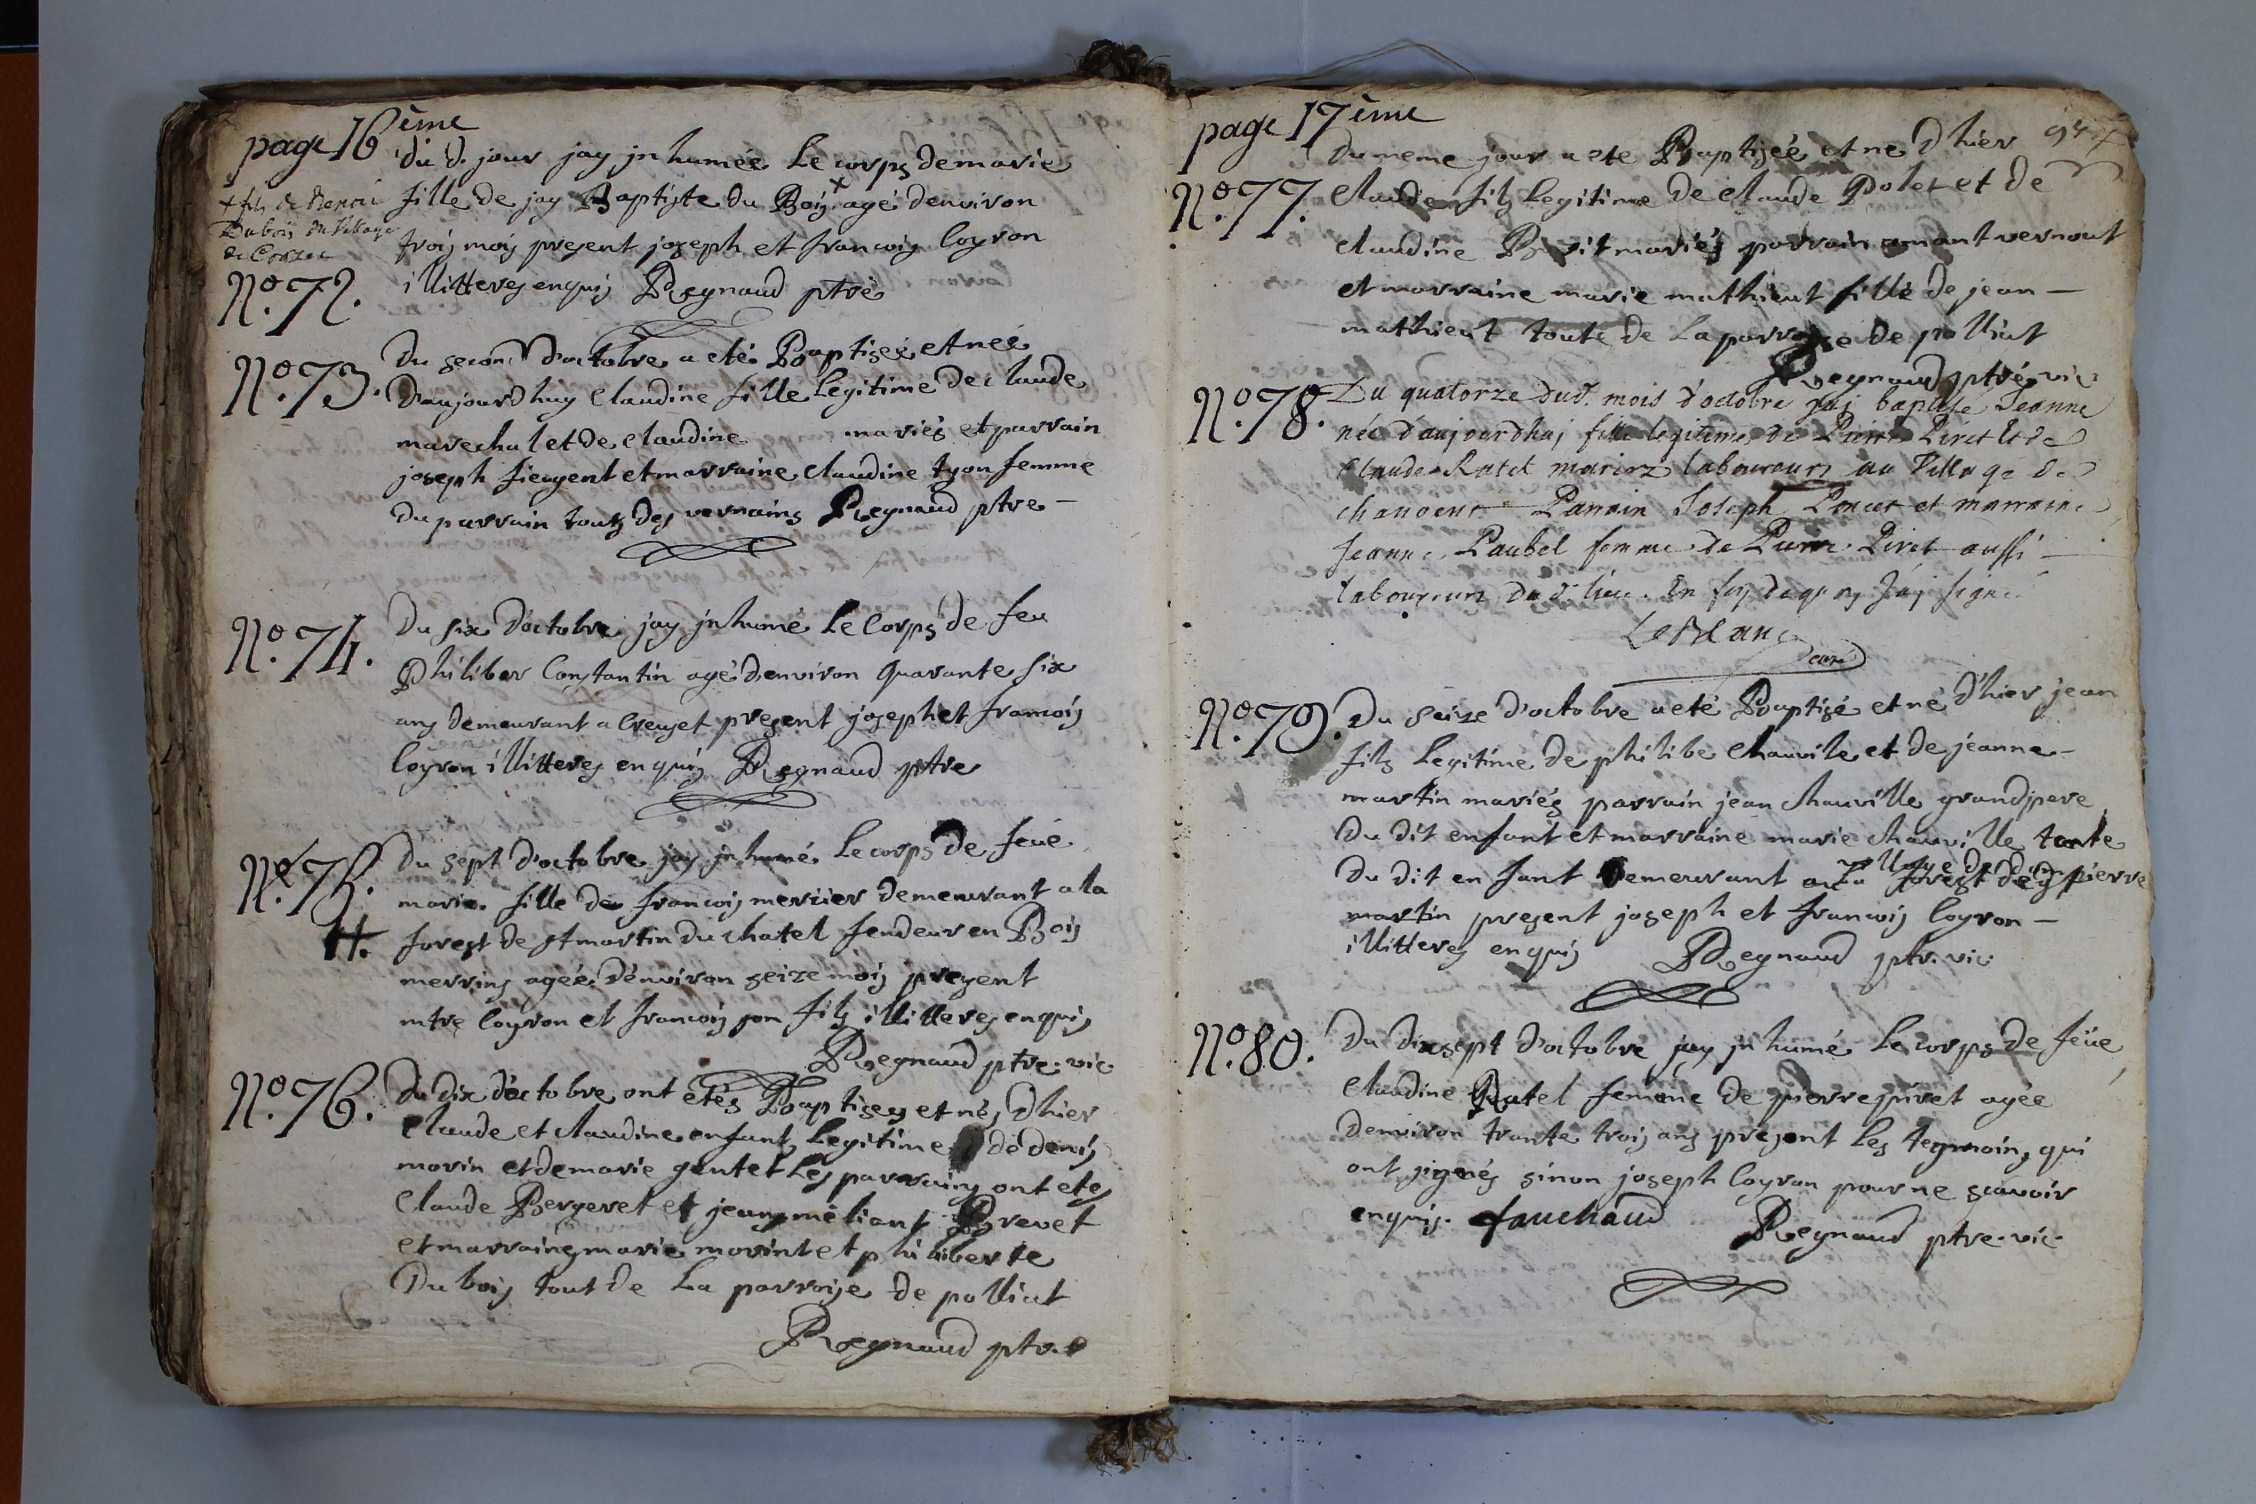 page 16ème
du d. jour jay jnhumée le corps de marie
+ fils de Benoit
Dubois du Village
de Corzee
fille de jay Baptiste du Bois + agé denviron
trois mois present joseph et francois loyron
illitteres enquis Regnaud ptre
No. 72.
No. 73.
Du second d'octobre a eté Baptiseé et née
d'aujourdhuy Claudine fille legitime de claude
marechal et de claudine mariés et parrain
joseph et marraine claudine tyon femme
du parrain touts des vernains Regnaud ptre
No. 74.
Du six d'octobre jay jnhumé le corps de feu
Philiber Constantin agé denviron quarante six
ans demeurant a Creuset present joseph et francois
loyron illitteres enquis Regnaud ptre
No. 75.
Du sept d'octobre jay jnhumé le corps de feüe
marie fille de francois mercier demeurant a la
H. forest de st martin du chatel fendeur en Bois
merrins agée d'environ seize mois present
mtre loyron et francois son fils illitteres enquis
Regnaud ptre. vic
No. 76.
Du dix d'octobre ont etés Baptises et nés d'hier
Claude et claudine enfants legitime de denis
morin et de marie gentet les parrains ont etes
Claude Bergeret et jean meliant Brevet
et marraines marie morint et philiberte
Du bois tout de la parroise de polliat
Regnaud ptre
page 17ème
94
No. 77.
Du meme jour a ete Baptizée et ne d'hier
Claude fils legitime de claude Polet et de
claudine mariés parrain amant vernout
et marraine marie mathieut fille de jean
mathieut toute de la parroise de polliat
Regnaud ptre vic
No. 78.
Du quatorze dud. mois d'octobre jaj baptisé Jeanne
née d'aujourdhuj fille legitime de Pierre Piret et de
Claude Ratel mariez laboureurs au Village de
chanoens Parrain Joseph Poncet et marraine
Jeanne Paubel femme de Pierre Piret aussi
laboureurs du d. lieu. En foy de quoy Jaj signé
LeBlanc
curé
No. 79.
Du seize d'octobre a eté Baptisé et né d'hier jean
fils legitime de philibe Chauvile et de jeanne
martin mariés parrain jean chauville grandpere
du dit enfant et marraine marie chauville tante
du dit enfant demeurant au village de dompierre
la forest de st
martin present joseph et francois loyron
illitteres enquis Regnaud ptr. vic
No. 80.
Du dixsept d'octobre jay jnhumé le corps de feüe
claudine Ratel femme de pierre piret agée
denviron trante trois ans present les tesmoins qui
ont signés sinon joseph loyron pour ne scavoir
enquis. fauchaud Regnaud ptre. vic